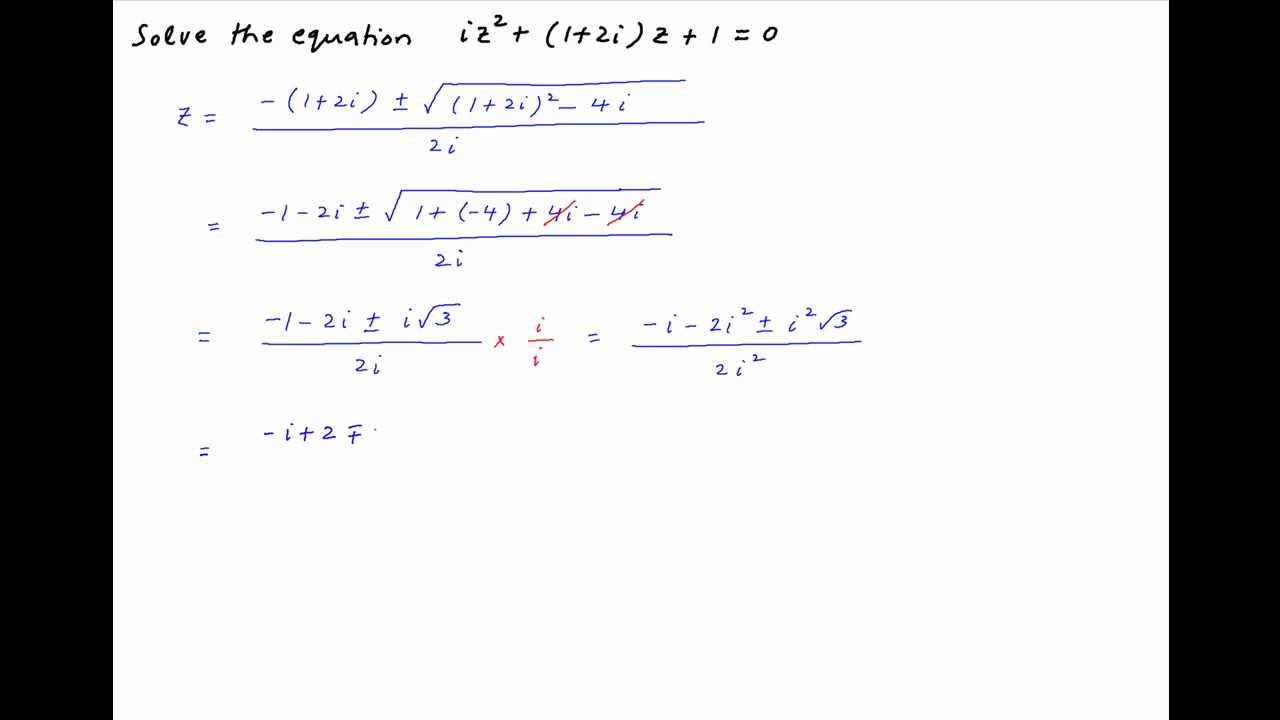 Solve the equation iz² + (1+2i) z + 1 = 0
z = (-(1+2i) ± √((1+2i)² - 4i)) / 2i
= (-1 - 2i ± √(1 + (-4) + 4i - 4i)) / 2i
= (-1 - 2i ± i√3) / 2i × i/i = (-i - 2i² ± i²√3) / 2i²
= -i + 2 ∓